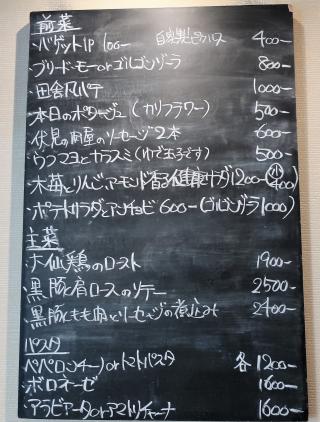 前菜
・バゲット1P 100- 自家製ピクルス 400-
・ブリードモーorゴルゴンゾーラ 800-
・田舎風パテ 1000-
・本日のポタージュ(カリフラワー) 500-
・伏見の肉屋のソーセージ2本 600-
・ウフマヨとカラスミ(ゆで玉子です) 500-
・木苺とりんご、アーモンド香る健康サラダ1200-(小400)
・ポテトサラダとアンチョビ 600-(ゴルゴンゾーラ1000)
主菜
・大仙鶏のロースト 1900-
・黒豚肩ロースのソテー 2500-
・黒豚もも肉とソーセージの煮込み 2400-
パスタ
・ペペロンチーノorトマトパスタ 各1200-
・ボロネーゼ 1600-
・アラビアータorアマトリチャーナ 1600-